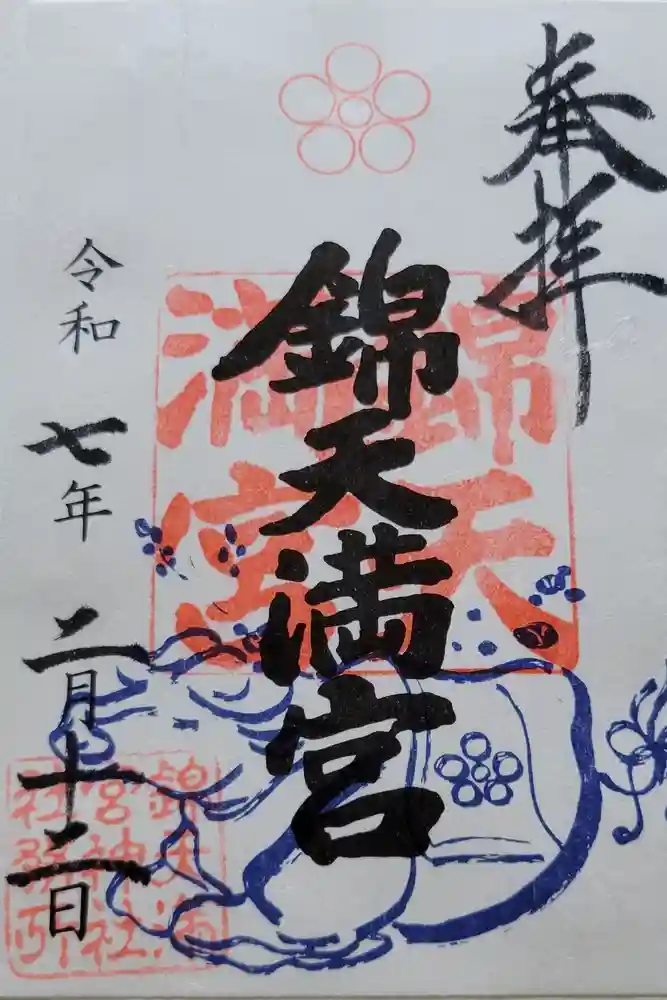 奉拝
錦天満宮
錦天
満宮
令和七年二月十二日
錦天満
宮神社
社務所